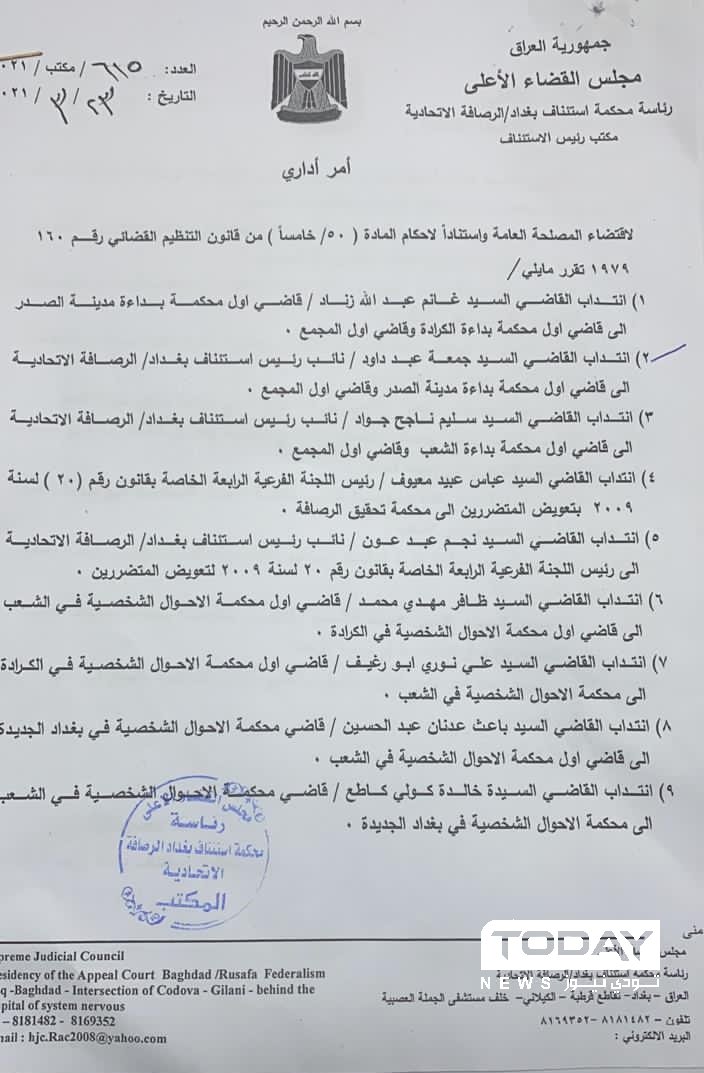 بسم الله الرحمن الرحيم
جمهورية العراق
مجلس القضاء الأعلى
رئاسة محكمة استئناف بغداد/الرصافة الاتحادية
مكتب رئيس الاستئناف
العدد: ٦١٥ / مكتب / ٠٢١
التاريخ : ٢٣ / ٣ / ٠٢١
أمر أداري
لاقتضاء المصلحة العامة واستناداً لاحكام المادة ( ٥٠/ خامساً ) من قانون التنظيم القضائي رقم ١٦٠
١٩٧٩ تقرر مايلي/
١) انتداب القاضي السيد غانم عبد الله زناد / قاضي اول محكمة بداءة مدينة الصدر
الى قاضي اول محكمة بداءة الكرادة وقاضي اول المجمع .
٢) انتداب القاضي السيد جمعة عبد داود / نائب رئيس استئناف بغداد/ الرصافة الاتحادية
الى قاضي اول محكمة بداءة مدينة الصدر وقاضي اول المجمع .
٣) انتداب القاضي السيد سليم ناجح جواد / نائب رئيس استئناف بغداد/ الرصافة الاتحادية
الى قاضي اول محكمة بداءة الشعب وقاضي اول المجمع .
٤) انتداب القاضي السيد عباس عبيد معيوف / رئيس اللجنة الفرعية الرابعة الخاصة بقانون رقم (٢٠ ) لسنة
٢٠٠٩ بتعويض المتضررين الى محكمة تحقيق الرصافة .
٥) انتداب القاضي السيد نجم عبد عون / نائب رئيس استئناف بغداد/ الرصافة الاتحادية
الى رئيس اللجنة الفرعية الرابعة الخاصة بقانون رقم ٢٠ لسنة ٢٠٠٩ لتعويض المتضررين .
٦) انتداب القاضي السيد ظافر مهدي محمد / قاضي اول محكمة الاحوال الشخصية في الشعب
الى قاضي اول محكمة الاحوال الشخصية في الكرادة .
٧) انتداب القاضي السيد علي نوري ابو رغيف / قاضي اول محكمة الاحوال الشخصية في الكرادة
الى محكمة الاحوال الشخصية في الشعب .
٨) انتداب القاضي السيد باعث عدنان عبد الحسين / قاضي محكمة الاحوال الشخصية في بغداد الجديدة
الى قاضي اول محكمة الاحوال الشخصية في الشعب .
٩) انتداب القاضي السيدة خالدة كولي كاطع / قاضي محكمة الاحوال الشخصية في الشعب
الى محكمة الاحوال الشخصية في بغداد الجديدة .
مجلس القضاء الأعلى
رئاسة
محكمة استئناف بغداد الرصافة
الاتحادية
المكتب
منى
preme Judicial Council
esidency of the Appeal Court Baghdad /Rusafa Federalism
q -Baghdad - Intersection of Codova - Gilani - behind the
pital of system nervous
– 8181482 - 8169352
mail : hjc.Rac2008@yahoo.com
مجلس
رئاسة محكمة استئناف بغداد/الرصافة الاتحادية
العراق – بغداد- تقاطع قرطبة – الكيلاني- خلف مستشفى الجملة العصبية
تلفون – ٨١٨١٤٨٢ -٨١٦٩٣٥٢
البريد الالكتروني :
TODAY
NEWS تودي نيوز